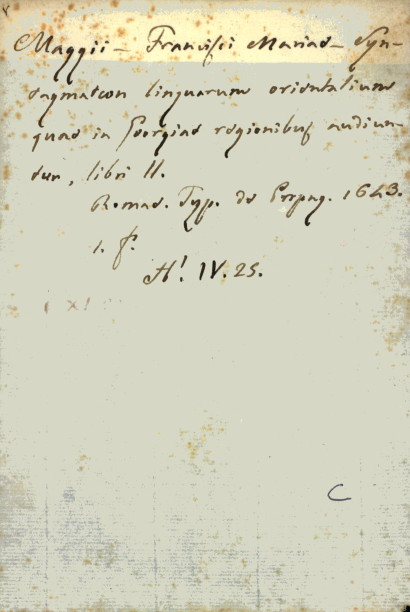 Maggii – Francisci Mariae – Syn-
tagmatωn linguarum orientalium
quae in Georgiae regionibus audiun-
tur, libri II.
Romae. Typ. de Propag. 1643.
1. f.
H! IV. 25.
C